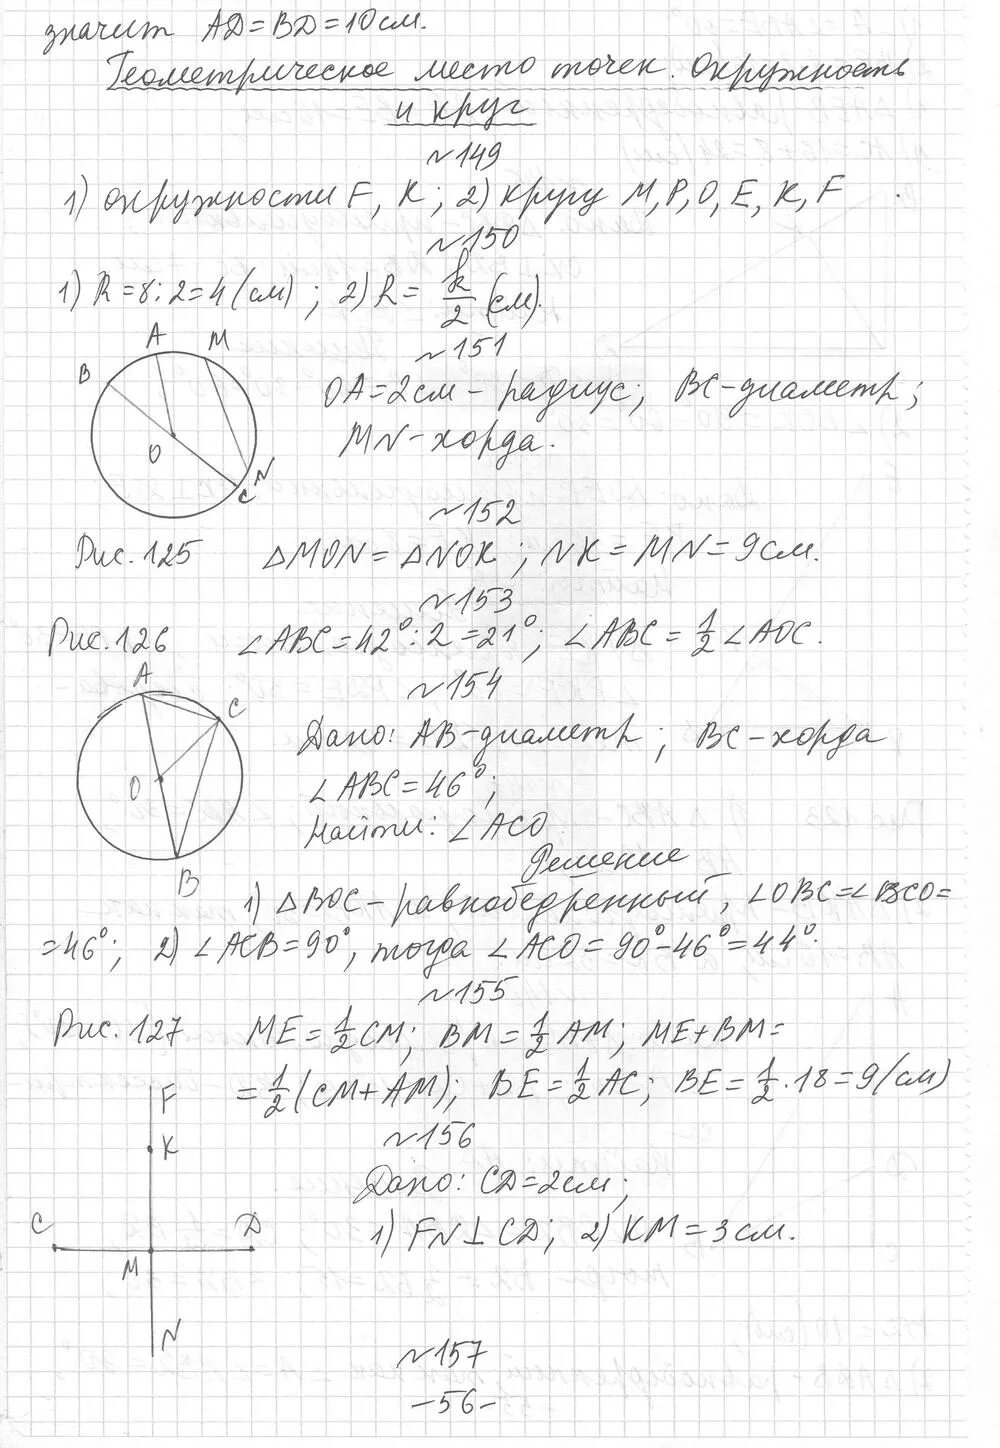 значит AD=BD=10см.
Геометрическое место точек. Окружность
и круг
№149
1) окружности F, K; 2) кругу M, P, O, E, K, F
№150
1) R=8:2=4(см); 2) R= k/2 (см).
№151
A M
B
OA=2см – радиус; BC-диаметр;
O
MN-хорда.
N
C
№152
Рис. 125 △MON=△NOK; NK=MN=9см.
№153
Рис. 126 ∠ABC=42°:2=21°; ∠ABC=1/2∠AOC.
№154
A
C
Дано: AB-диаметр; BC-хорда
O ∠ABC=46°;
Найти: ∠ACO
Решение
B
1) △BOC – равнобедренный, ∠OBC=∠BCO=
=46°; 2) ∠ACB=90°, тогда ∠ACO=90°-46°=44°.
№155
Рис. 127 ME=1/2CM; BM=1/2AM; ME+BM=
=1/2(CM+AM); BE=1/2AC; BE=1/2·18=9(см)
F
№156
K
Дано: CD=2см;
C D
1) FN⊥CD; 2) KM=3см.
M
N
№157
-56-